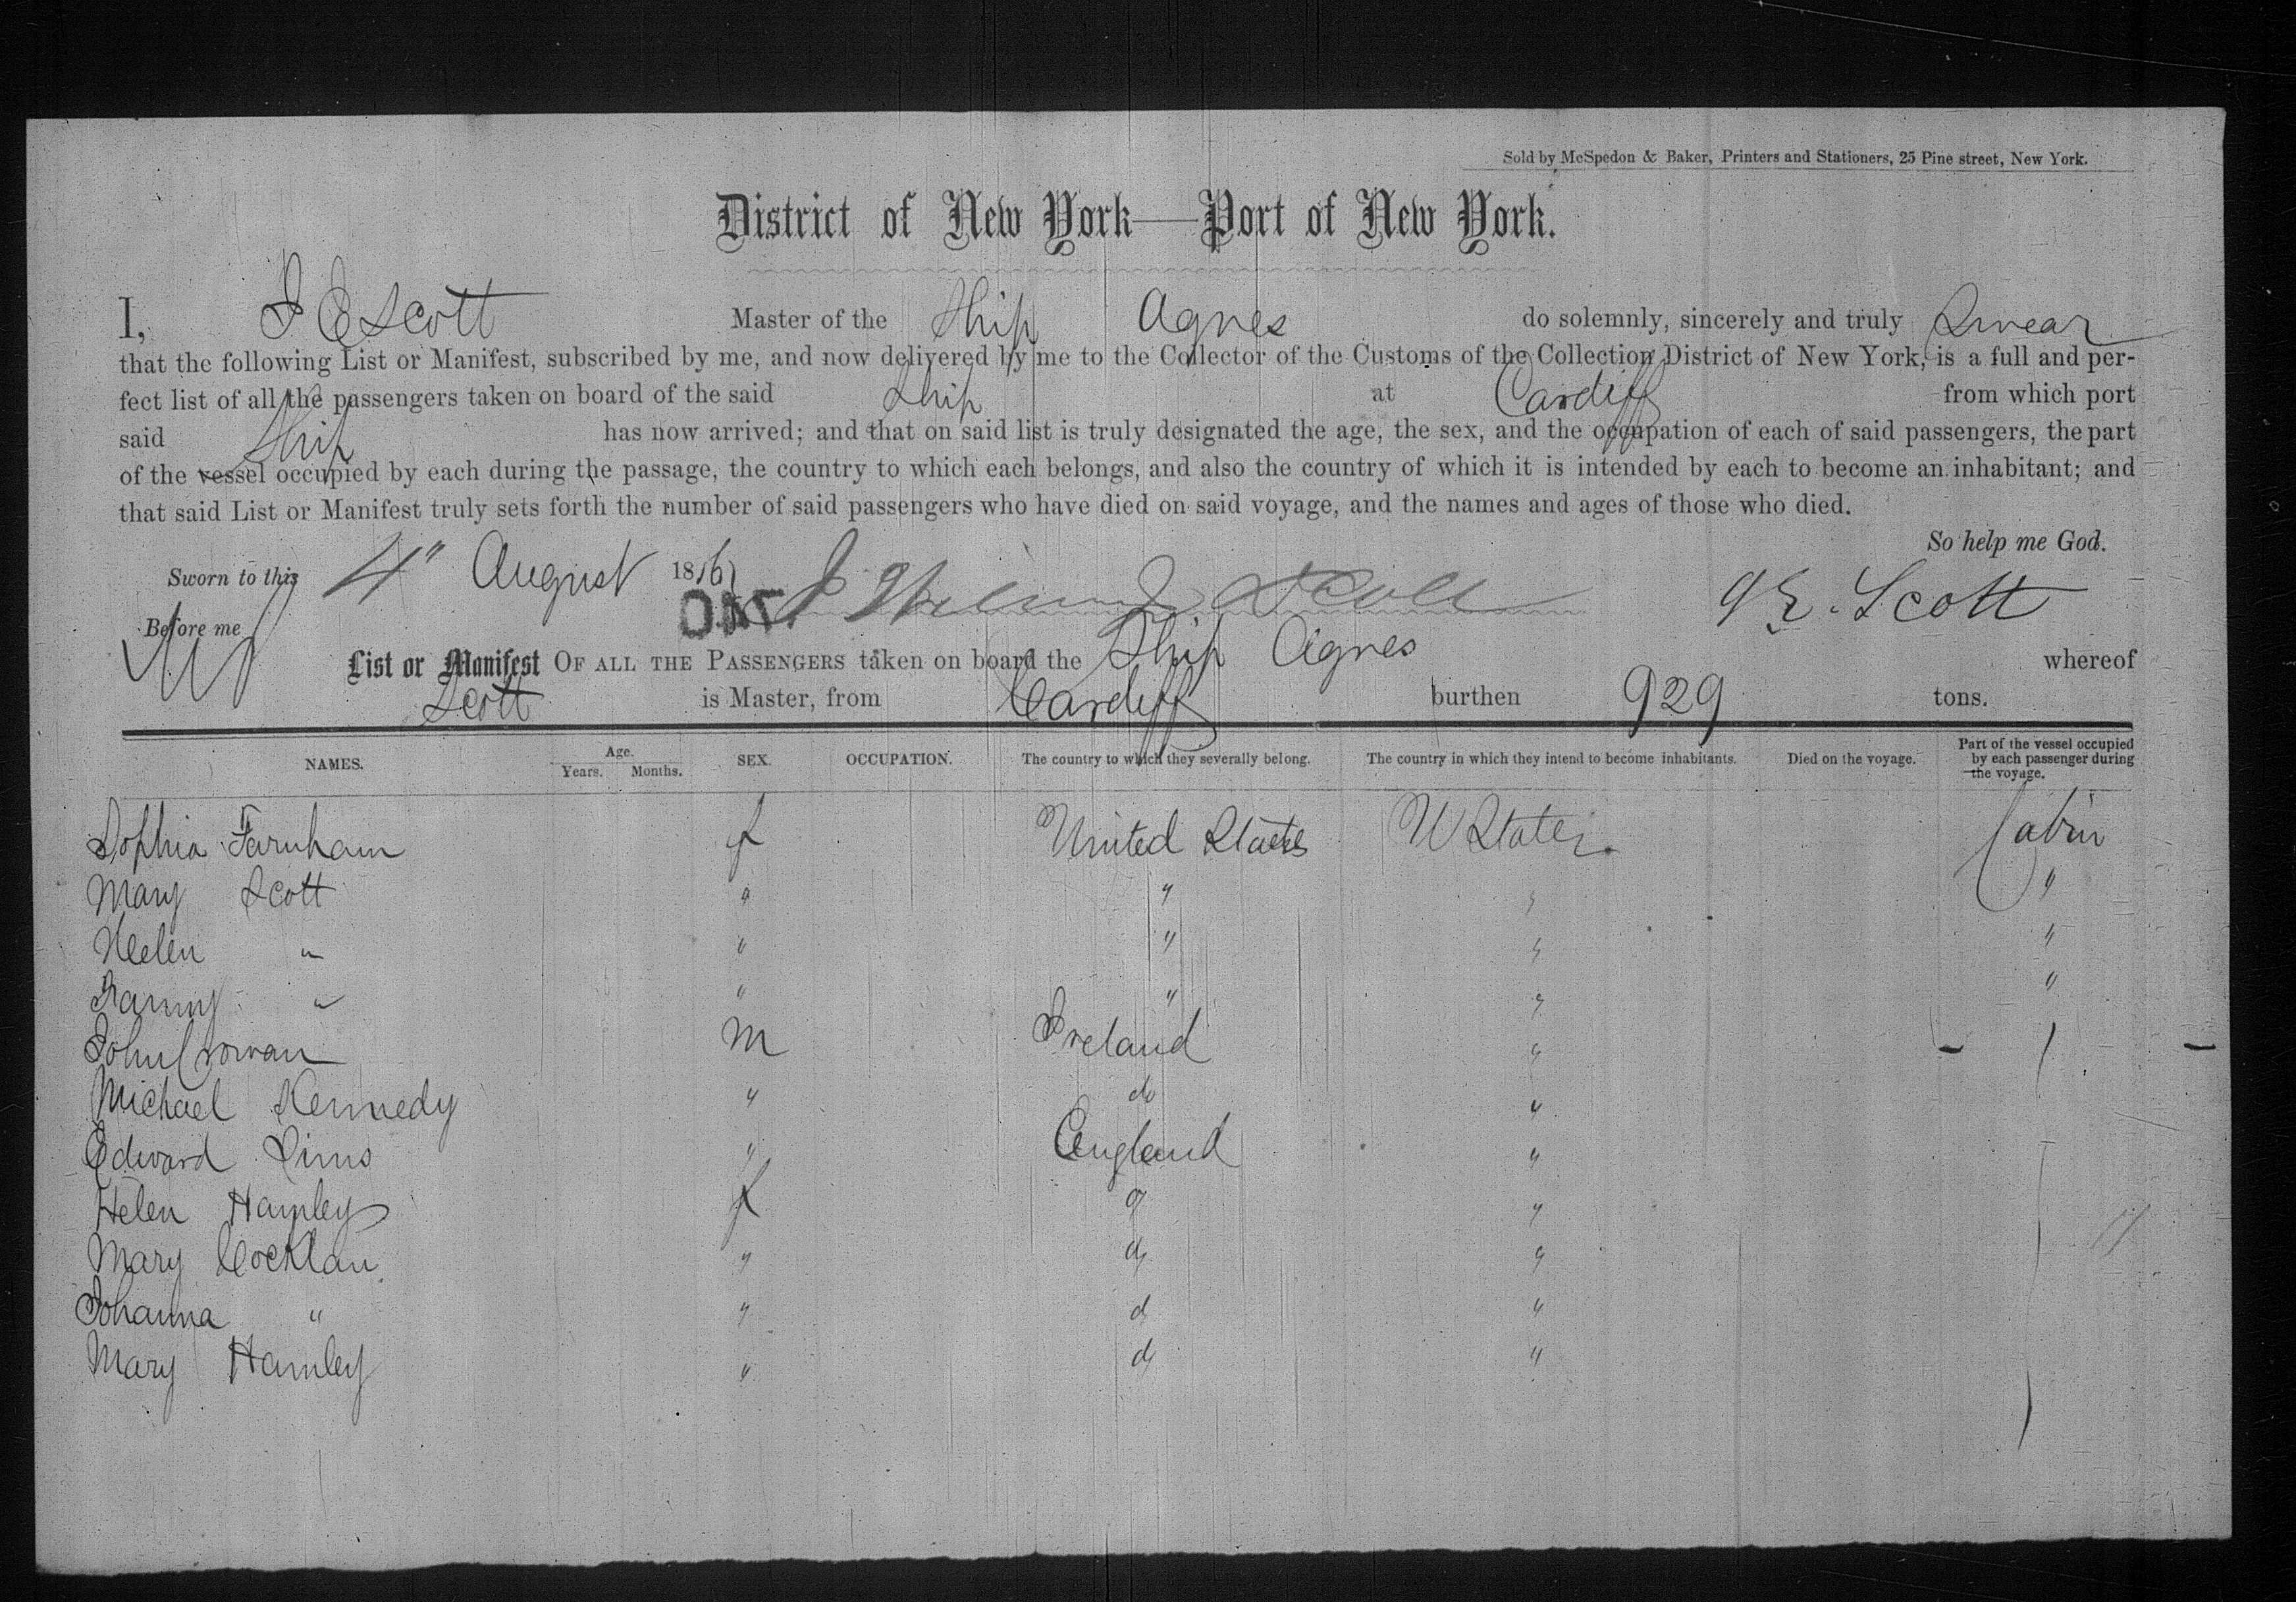 Sold by McSpedon & Baker, Printers and Stationers, 25 Pine street, New York.
District of New York—Port of New York.
I, J E Scott Master of the Ship Agnes do solemnly, sincerely and truly Swear
that the following List or Manifest, subscribed by me, and now delivered by me to the Collector of the Customs of the Collection District of New York, is a full and per-
fect list of all the passengers taken on board of the said Ship at Cardiff from which port
said Ship has now arrived; and that on said list is truly designated the age, the sex, and the occupation of each of said passengers, the part
of the vessel occupied by each during the passage, the country to which each belongs, and also the country of which it is intended by each to become an inhabitant; and
that said List or Manifest truly sets forth the number of said passengers who have died on said voyage, and the names and ages of those who died.
So help me God.
Sworn to this 4" August 18 J E. Scott
Before me
List or Manifest OF ALL THE PASSENGERS taken on board the Ship Agnes whereof
Scott is Master, from Cardiff burthen 929 tons.
NAMES. Age. Years. Months. SEX. OCCUPATION. The country to which they severally belong. The country in which they intend to become inhabitants. Died on the voyage. Part of the vessel occupied by each passenger during the voyage.
Sophia Farnham f United States U States. Cabin
Mary Scott " " " "
Helen " " " " "
Fanny " " " " "
John Crowan M Ireland "
Michael Kennedy " do "
Edward Sims " England "
Helen Hamley f d "
Mary Cocklan " do "
Johanna " " d "
Mary Hamley " do "